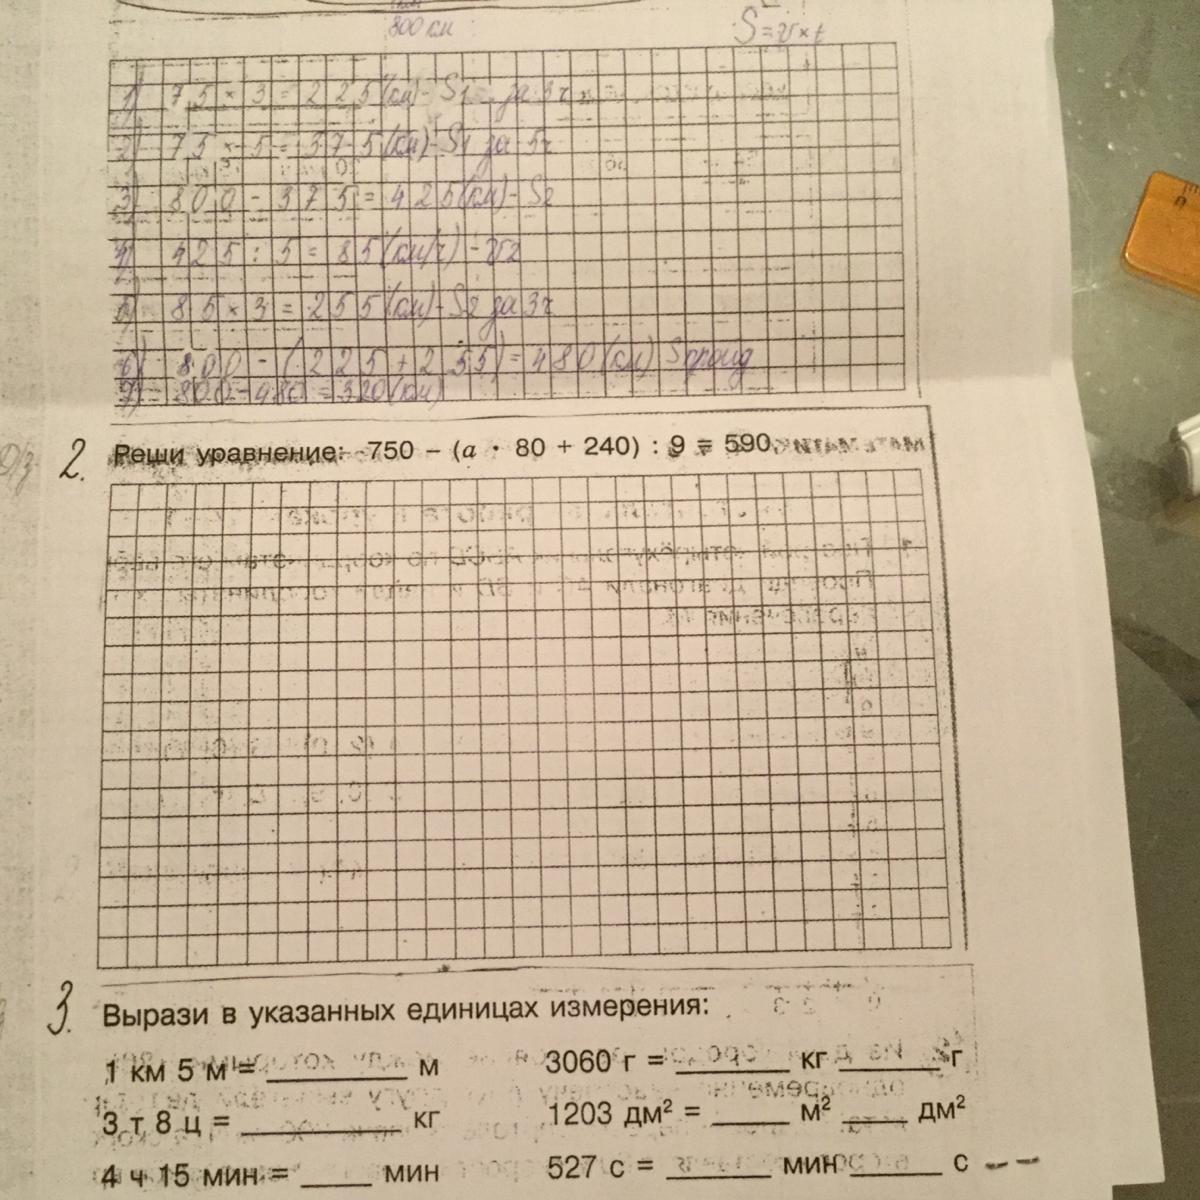 800 км
S = v × t
1) 75 × 3 = 225 (км) - S1 за 3ч
2) 75 × 5 = 375 (км) - S1 за 5ч
3) 800 - 375 = 425 (км) - S2
4) 425 : 5 = 85 (км/ч) - v2
5) 85 × 3 = 255 (км) - S2 за 3ч
6) 800 - (225 + 255) = 480 (км)
7) 800 - 480 = 320 (км)
2. Реши уравнение: 750 – (a · 80 + 240) : 9 = 590.
3. Вырази в указанных единицах измерения:
1 км 5 м = ________ м 3060 г = ________ кг ________ г
3 т 8 ц = ________ кг 1203 дм² = ________ м² ________ дм²
4 ч 15 мин = ________ мин 527 с = ________ мин ________ с